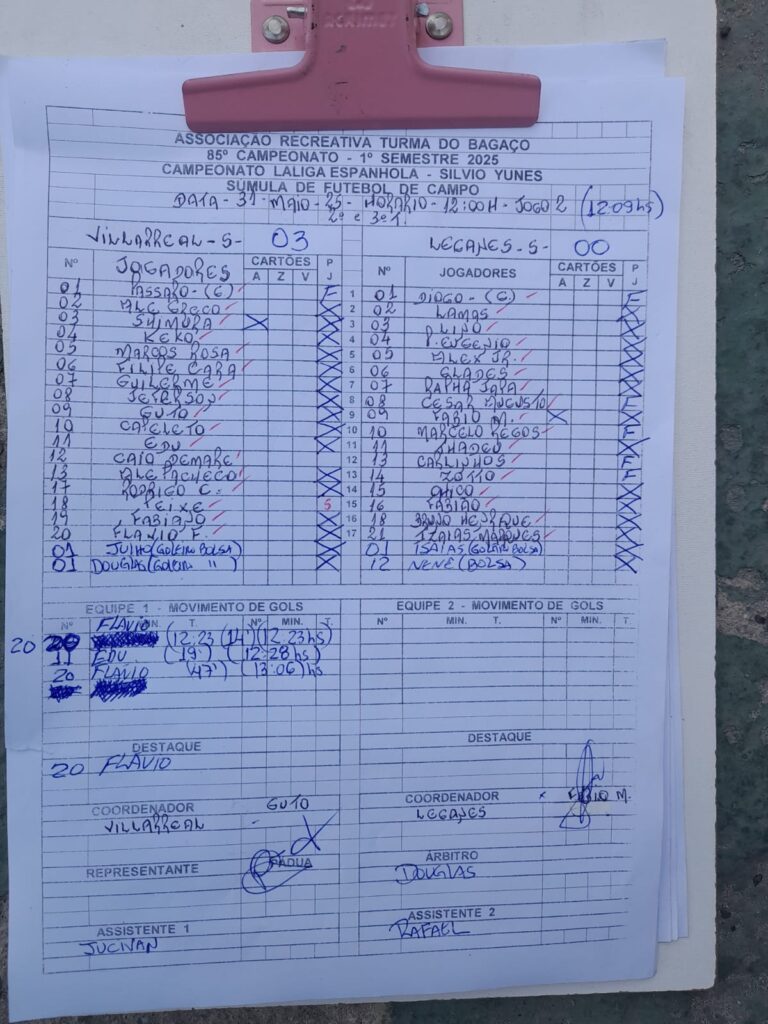 ASSOCIAÇÃO RECREATIVA TURMA DO BAGAÇO
85º CAMPEONATO - 1º SEMESTRE 2025
CAMPEONATO LALIGA ESPANHOLA - SILVIO YUNES
SÚMULA DE FUTEBOL DE CAMPO
DATA - 31 - MAIO - 25 - HORÁRIO - 12:00H - JOGO 2 (12:09hs)
2º e 3º T.
VILLARREAL - S - 03 LEGANES - S - 00
Nº JOGADORES CARTÕES P Nº JOGADORES CARTÕES P
A Z V J A Z V J
01 PASSARO - (G) F 1 01 DIOGO - (G) F
02 ALE GRECO X 2 02 LAMAS X
03 SHIMURA X X 3 03 LINO X
04 KEKO X 4 04 P. EUGENIO X
05 MARCOS ROSA X 5 05 ALEX JR. X
06 FILIPE CARA X 6 06 GLADES X
07 GUILERME X 7 07 RAPHA JAPA X
08 JEFERSON X 8 08 CESAR AUGUSTO
09 GUTO X 9 09 FABIO M. X X
10 CAPELETO X 10 10 MARCELO REGOS F
11 EDU X 11 11 THADEU X
12 CAIO DEMARE 12 13 CARLINHOS F
13 ALE PACHECO X 13 14 ZOTTO F
17 RODRIGO C. X 14 15 CHICO X
18 PEIXE 5 15 16 FABIÃO X
19 FABIANO X 16 18 BRUNO HENRIQUE X
20 FLAVIO F. X 17 21 IZAIAS MARQUES X
01 JULHO (GOLEIRO BOLSA) X 01 ISAIAS (GOLEIRO BOLSA) X
01 DOUGLAS (GOLEIRO ") X 12 NENÊ (BOLSA) X
EQUIPE 1 - MOVIMENTO DE GOLS EQUIPE 2 - MOVIMENTO DE GOLS
Nº MIN. T. Nº MIN. T. Nº MIN. T. Nº MIN. T.
FLAVIO
20 20 (12.23 (14') (12.23hs)
11 EDU (19') (12:28hs)
20 FLAVIO (47') (13:06)hs
DESTAQUE DESTAQUE
20 FLAVIO
COORDENADOR GUTO COORDENADOR x FABIO M.
VILLARREAL LEGANES
REPRESENTANTE PADUA ARBITRO
DOUGLAS
ASSISTENTE 1 ASSISTENTE 2
JUCIVAN RAFAEL